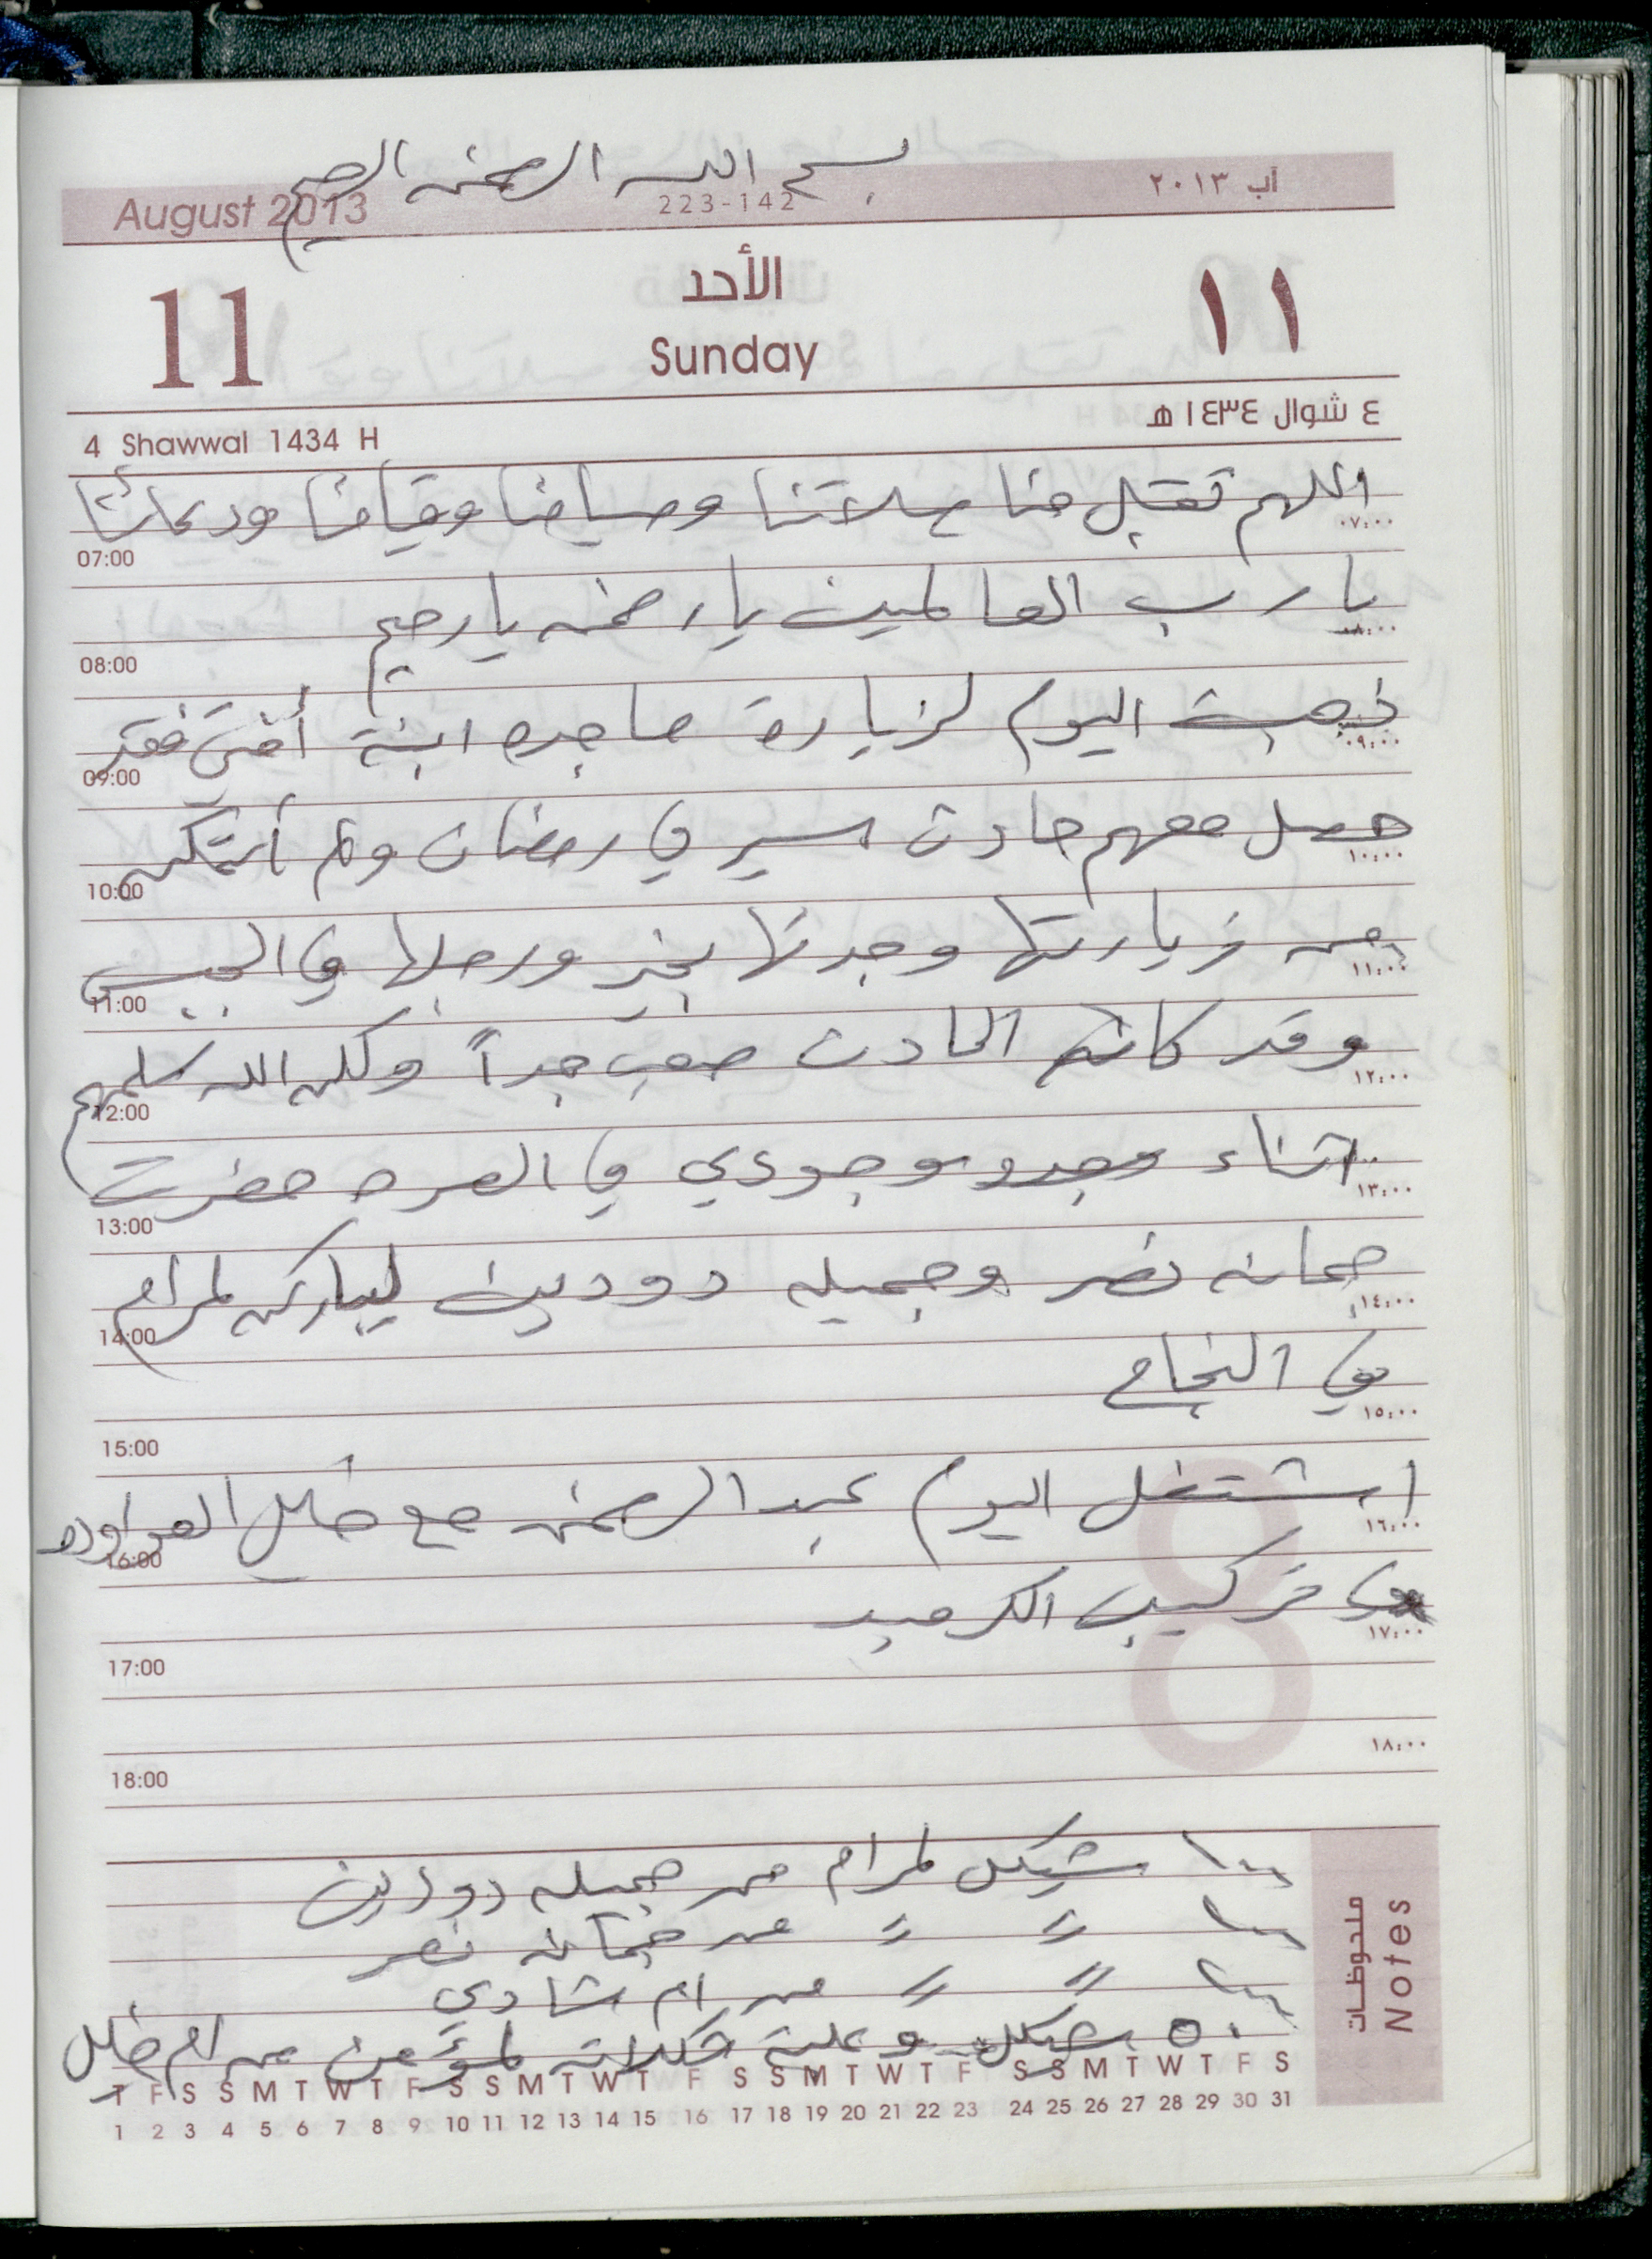 بسم الله الرحمن الرحيم
August 2013 223-142 آب ٢٠١٣
11 الأحد ١١
Sunday
4 Shawwal 1434 H ٤ شوال ١٤٣٤ هـ
اللهم تقبل منا صلاتنا وصيامنا وقيامنا ودعائنا
07:00 ٠٧:٠٠
يا رب العالمين يا رحمن يا رحيم
08:00 ٠٨:٠٠
ذهبت اليوم لزيارة ماجده ابنة أختي فقد
09:00 ٠٩:٠٠
حصل معهم حادث سير في رمضان ولم أتمكن
10:00 ١٠:٠٠
من زيارتها وجدتها بخير ورجلها في الجبس
11:00 ١١:٠٠
وقد كان الحادث صعب جداً ولكن الله سلمهم
12:00 ١٢:٠٠
اثناء وجودي في العرس حضرت
13:00 ١٣:٠٠
جمانه نصر وجميله دودين ليباركن لمرام
14:00 ١٤:٠٠
في النجاح
15:00 ١٥:٠٠
اشتغل اليوم عبد الرحمن مع خليل العواوده
16:00 ١٦:٠٠
في تركيب الكرميد
17:00 ١٧:٠٠
18:00 ١٨:٠٠
ملحوظات Notes
١٠٠ شيكل لمرام من جميله دودين
١٠٠ = = من جمانه نصر
١٠٠ = = من ام شادي
٥٠ شيكل وعلبة شكلاته لمؤمن من ام خليل
T F S S M T W T F S S M T W T F S S M T W T F S S M T W T F S
1 2 3 4 5 6 7 8 9 10 11 12 13 14 15 16 17 18 19 20 21 22 23 24 25 26 27 28 29 30 31